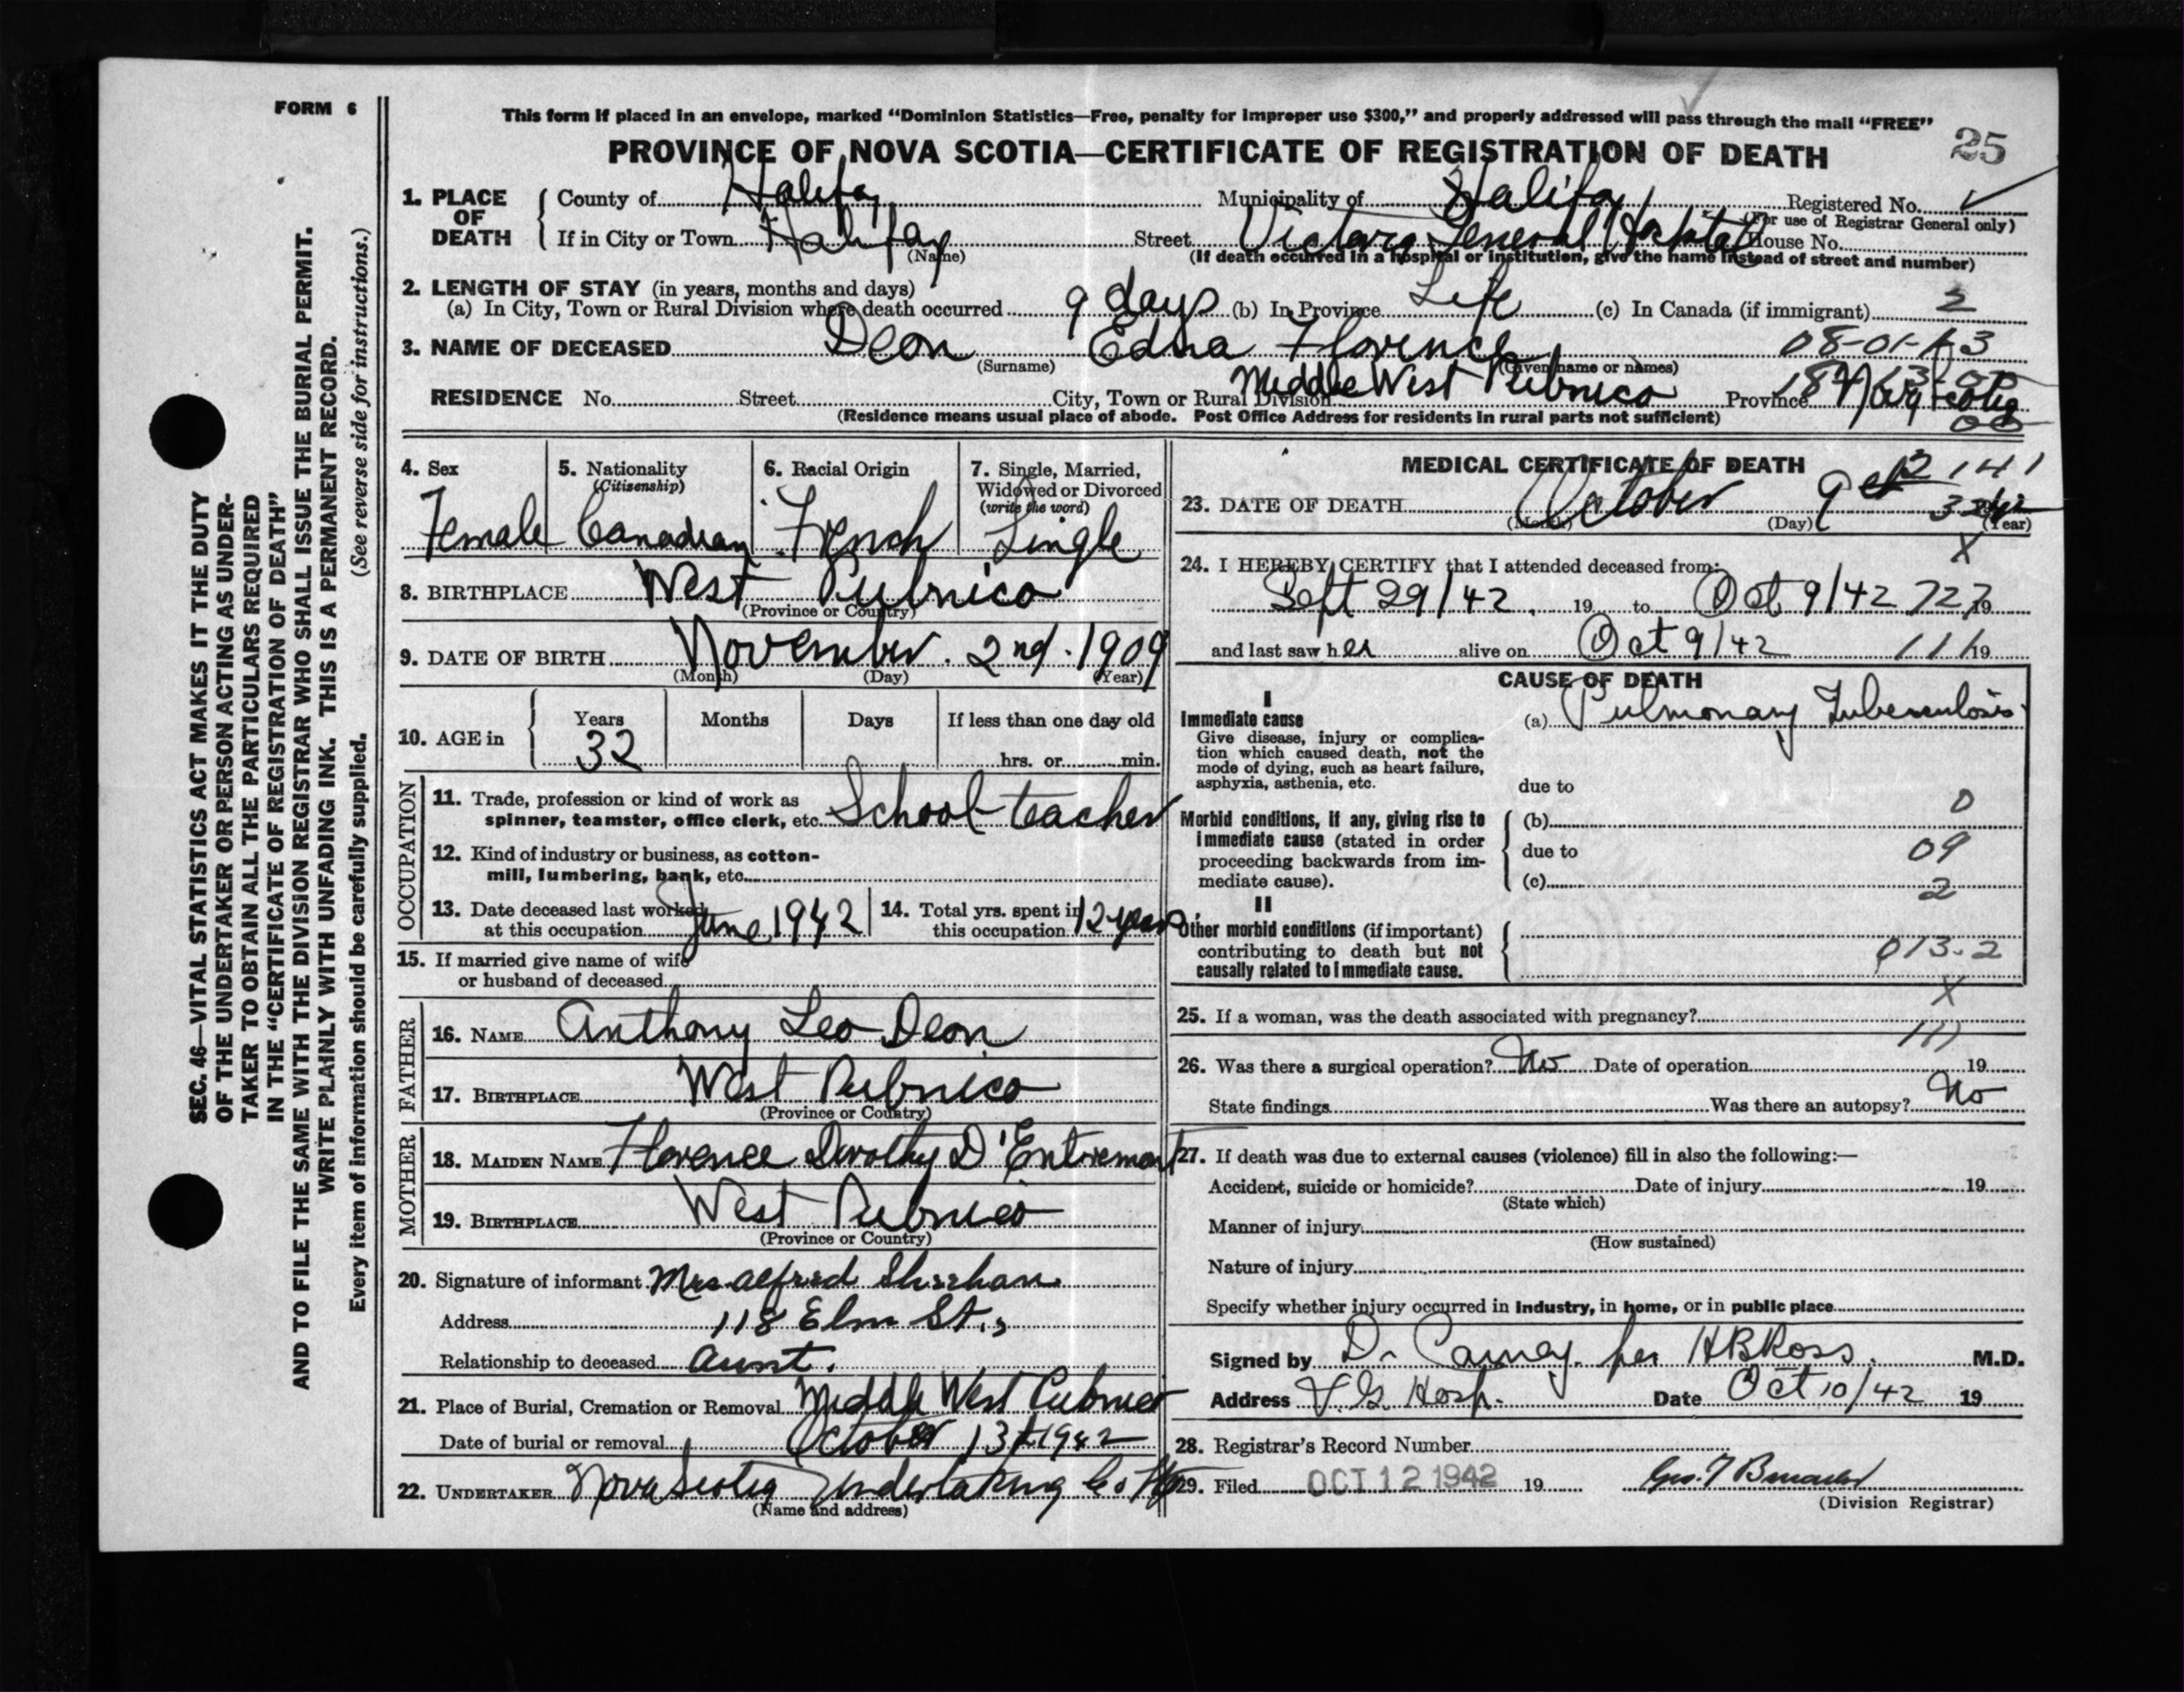 FORM 6
This form if placed in an envelope, marked “Dominion Statistics—Free, penalty for improper use $300,” and properly addressed will pass through the mail “FREE”
PROVINCE OF NOVA SCOTIA—CERTIFICATE OF REGISTRATION OF DEATH
25
1. PLACE OF DEATH
County of Halifax Municipality of Halifax Registered No.
(For use of Registrar General only)
If in City or Town Halifax Street Victoria General Hospital House No.
(Name) (If death occurred in a hospital or institution, give the name instead of street and number)
2. LENGTH OF STAY (in years, months and days)
(a) In City, Town or Rural Division where death occurred 9 days (b) In Province Life (c) In Canada (if immigrant) 2
3. NAME OF DECEASED Deon Edna Florence
(Surname) (Given name or names)
RESIDENCE No. Street City, Town or Rural Division Middle West Pubnico Province Nova Scotia
(Residence means usual place of abode. Post Office Address for residents in rural parts not sufficient)
4. Sex Female
5. Nationality (Citizenship) Canadian
6. Racial Origin French
7. Single, Married, Widowed or Divorced (write the word) Single
8. BIRTHPLACE West Pubnico
(Province or Country)
9. DATE OF BIRTH November 2nd. 1909
(Month) (Day) (Year)
10. AGE in Years Months Days If less than one day old
32 hrs. or min.
OCCUPATION
11. Trade, profession or kind of work as
spinner, teamster, office clerk, etc. School teacher
12. Kind of industry or business, as cotton-
mill, lumbering, bank, etc.
13. Date deceased last worked at this occupation June 1942
14. Total yrs. spent in this occupation 12 years
15. If married give name of wife
or husband of deceased
FATHER
16. NAME Anthony Leo Deon
17. BIRTHPLACE West Pubnico
(Province or Country)
MOTHER
18. MAIDEN NAME Florence Dorothy D'Entremont
19. BIRTHPLACE West Pubnico
(Province or Country)
20. Signature of informant Mrs. Alfred Sheehan
Address 118 Elm St.,
Relationship to deceased Aunt.
21. Place of Burial, Cremation or Removal Middle West Pubnico
Date of burial or removal October 13 1942
22. UNDERTAKER Nova Scotia Undertaking Co
(Name and address)
MEDICAL CERTIFICATE OF DEATH
23. DATE OF DEATH October 9
(Month) (Day) (Year)
24. I HEREBY CERTIFY that I attended deceased from:
Sept 29/42 19 to Oct 9/42 727 19
and last saw her alive on Oct 9/42 111 19
CAUSE OF DEATH
I
Immediate cause
Give disease, injury or complica-
tion which caused death, not the
mode of dying, such as heart failure,
asphyxia, asthenia, etc.
(a) Pulmonary Tuberculosis
due to
0
Morbid conditions, if any, giving rise to
immediate cause (stated in order
proceeding backwards from im-
mediate cause).
(b)
due to 09
(c) 2
II
Other morbid conditions (if important)
contributing to death but not
causally related to immediate cause.
013.2
X
25. If a woman, was the death associated with pregnancy?
26. Was there a surgical operation? No Date of operation 19
State findings Was there an autopsy? No
27. If death was due to external causes (violence) fill in also the following:—
Accident, suicide or homicide? Date of injury 19
(State which)
Manner of injury
(How sustained)
Nature of injury
Specify whether injury occurred in industry, in home, or in public place
Signed by Dr per HB Ross. M.D.
Address V.G. Hosp. Date Oct 10/42 19
28. Registrar's Record Number
29. Filed OCT 12 1942 19
(Division Registrar)
SEC. 46—VITAL STATISTICS ACT MAKES IT THE DUTY
OF THE UNDERTAKER OR PERSON ACTING AS UNDER-
TAKER TO OBTAIN ALL THE PARTICULARS REQUIRED
IN THE “CERTIFICATE OF REGISTRATION OF DEATH”
AND TO FILE THE SAME WITH THE DIVISION REGISTRAR WHO SHALL ISSUE THE BURIAL PERMIT.
WRITE PLAINLY WITH UNFADING INK. THIS IS A PERMANENT RECORD.
Every item of information should be carefully supplied. (See reverse side for instructions.)